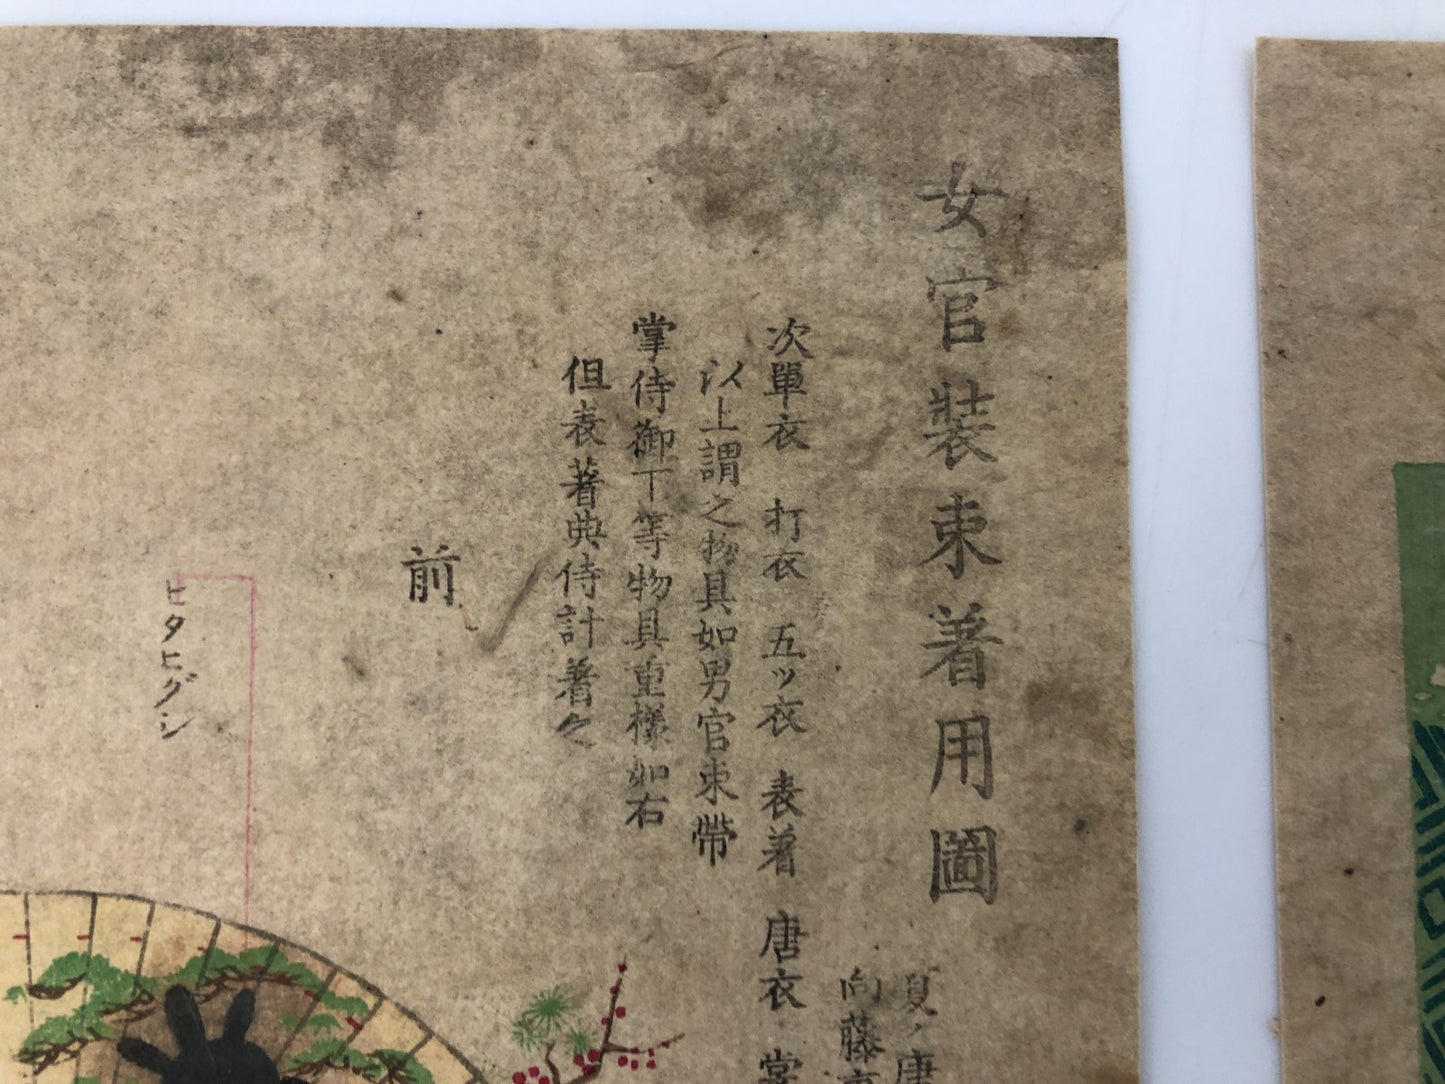 女官裝束着用圖
夏ノ唐
向藤
次單衣 打衣 五ッ衣 表着 唐衣 裳
以上謂之物具如男官束帶
掌侍御丁等物具重樣如右
但表著典侍計着之
前
ヒタヒグシ